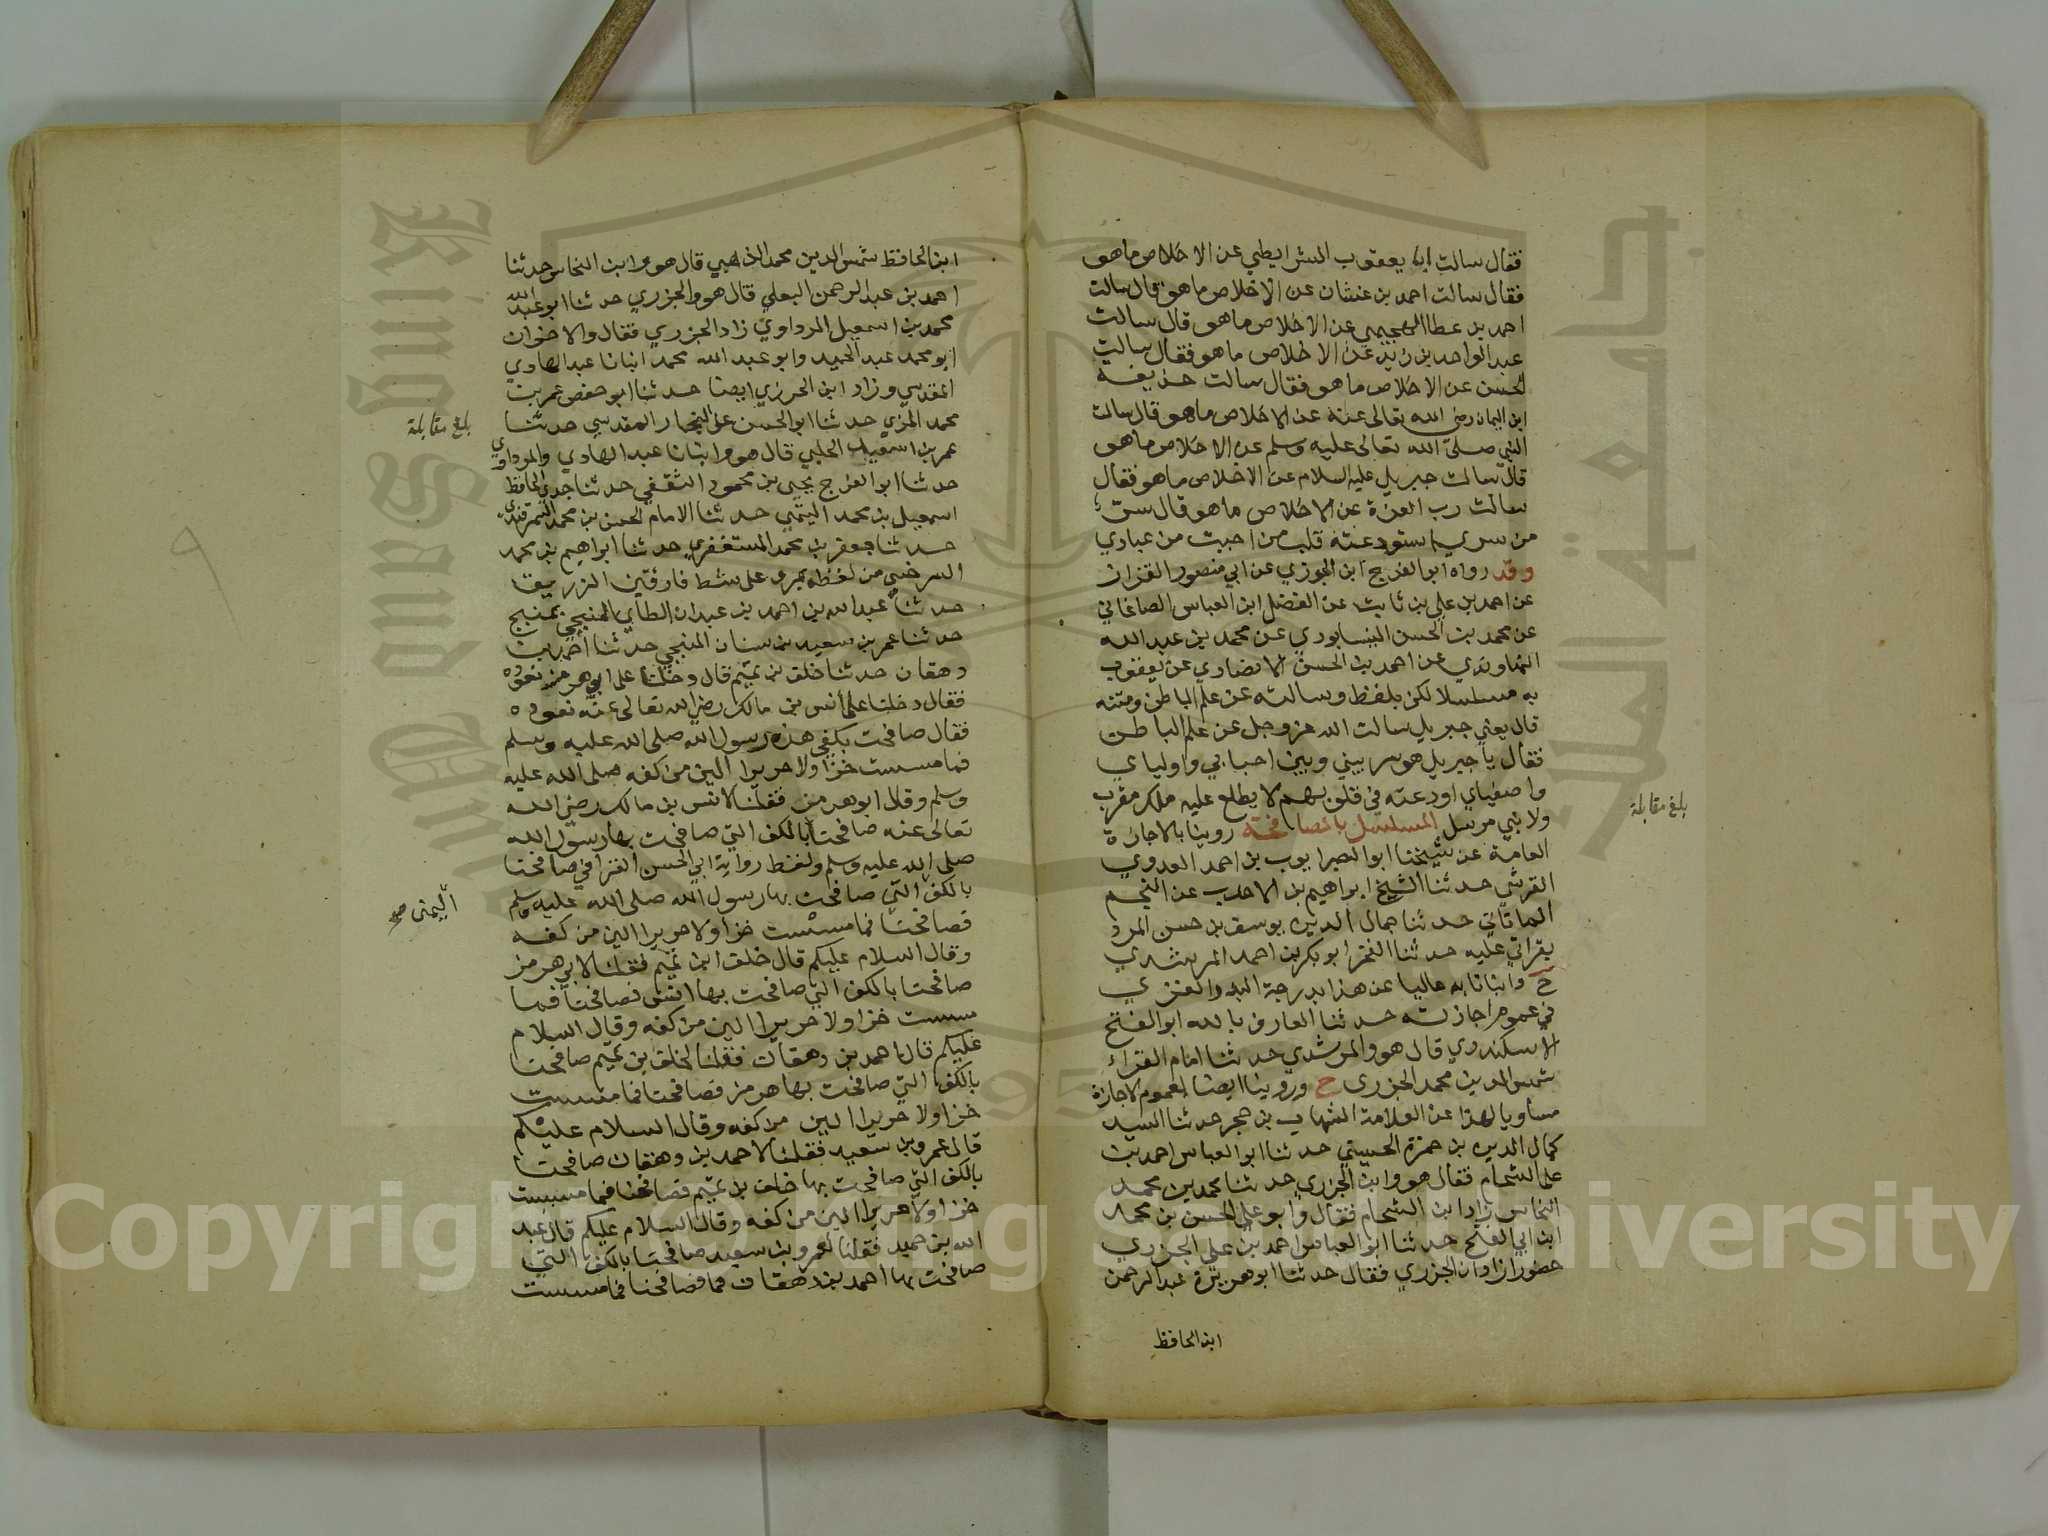 فقال سالت ابا يعقوب الشرايطي عن الاخلاص ماهو
فقال سالت احمد بن غسان عن الاخلاص ماهو قال سالت
احمد بن عطا الهجيمي عن الاخلاص ماهو قال سالت
عبد الواحد بن زيد عن الاخلاص ماهو فقال سالت
الحسن عن الاخلاص ماهو فقال سالت حذيفة
ابن اليمان رضي الله تعالى عنه عن الاخلاص ماهو قال سالت
النبي صلى الله تعالى عليه وسلم عن الاخلاص ماهو
قال سالت جبريل عليه السلام عن الاخلاص ماهو فقال
سالت رب العزة عن الاخلاص ماهو قال سر
من سري استودعته قلب من احببت من عبادي
وقد رواه ابو الفرج ابن الجوزي عن ابي منصور القزاز
عن احمد بن علي بن ثابت عن الفضل ابن العباس الصاغاني
عن محمد بن الحسن النيسابوري عن محمد بن عبد الله
النهاوندي عن احمد بن الحسن الانصاري عن يعقوب
به مسلسلا لكن بلفظ وسالته عن علم الباطن ومتنه
قال يعني جبريل سالت الله عز وجل عن علم الباطن
فقال يا جبريل هو سر بيني وبين احبابي واوليائي
واصفياي اودعته في قلوبهم لا يطلع عليه ملك مقرب
ولا نبي مرسل المسلسل بالمصافحة روينا بالاجازة
العامة عن شيخنا ابو الصبر ايوب بن احمد العدوي
القرشي حدثنا الشيخ ابراهيم بن الاحدب عن النجم
الماتاني حدثنا جمال الدين يوسف بن حسن المرد
بقراتي عليه حدثنا الفخر ابو بكر بن احمد المرشدي
ح وانبانا به عاليا عن هذا بدرجة البدر الغزي
في عموم اجازته حدثنا العارف بالله ابو الفتح
الاسكندري قال هو والمرشدي حدثنا امام القراء
شمس الدين محمد الجزري ح وروينا ايضا بعموم الاجازة
مساويا لهذا عن العلامة الشهاب بن حجر حدثنا السيد
كمال الدين بن حمزة الحسيني حدثنا ابو العباس احمد بن
علي الشحام فقال هو وابن الجزري حدثنا محمد بن محمد
النحاس زاد ابن الشحام فقال وابو علي الحسن بن محمد
ابن ابي الفتح حدثنا ابو العباس احمد بن علي الجزري
حضورا زاد ابن الجزري فقال حدثنا ابو هريرة عبد الرحمن
ابن الحافظ
بلغ مقابلة
ابن الحافظ شمس الدين محمد الذهبي قال هو وابن النحاس حدثنا
احمد بن عبد الرحمن البعلي قال هو والجزري حدثنا ابو عبد الله
محمد بن اسمعيل المرداوي زاد الجزري فقال والاخوان
ابو محمد عبد الحميد وابو عبد الله محمد انبانا عبد الهادي
المقدسي وزاد ابن الجزري ايضا حدثنا ابو حفص عمر بن
محمد المزي حدثنا ابو الحسن علي المقدسي حدثنا
عمر بن اسمعيل الحلبي قال هو وانبانا عبد الهادي والمرداوي
حدثنا ابو الفرج يحيى بن محمود الثقفي حدثنا جدي الحافظ
اسمعيل بن محمد التيمي حدثنا الامام الحسن بن محمد السمرقندي
حدثنا جعفر بن محمد المستغفري حدثنا ابراهيم بن محمد
السرخسي من لفظه بمرو على شط الزريق
حدثنا عبد الله بن احمد بن عبدان الطاي المنبجي بمنبج
حدثنا عمر بن سعيد بن سنان المنبجي حدثنا احمد بن
دهقان حدثنا خلق بن تميم قال دخلنا على ابي هرمز نعوده
فقال دخلنا على انس بن مالك رضي الله تعالى عنه نعوده
فقال صافحت بكفي هذه رسول الله صلى الله عليه وسلم
فما مسست خزا ولا حريرا الين من كفه صلى الله عليه
وسلم وقال ابو هرمز فقلنا لانس بن مالك رضي الله
تعالى عنه صافحنا بالكف التي صافحت بها رسول الله
صلى الله عليه وسلم ولفظ رواية ابي الحسن الفرا في صافحنا
بالكف التي صافحت بها رسول الله صلى الله عليه وسلم
فصافحنا فما مسست خزا ولا حريرا الين من كفه
وقال السلام عليكم قال خلق ابن تميم فقلنا لابي هرمز
صافحنا بالكف التي صافحت بها انس فصافحنا فما
مسست خزا ولا حريرا الين من كفه وقال السلام
عليكم قال احمد بن دهقان فقلنا لخلق بن تميم صافحنا
بالكف التي صافحت بها هرمز فصافحنا فما مسست
خزا ولا حريرا الين من كفه وقال السلام عليكم
قال عمرو بن سعيد فقلنا لاحمد بن دهقان صافحنا
بالكف التي صافحت بها خلق بن تميم فصافحنا فما مسست
خزا ولا حريرا الين من كفه وقال السلام عليكم قال عبد
الله بن حميد فقلنا لعمرو بن سعيد صافحنا بالكف التي
صافحت بها احمد بن دهقان فصافحنا فما مسست
بلغ مقابلة
اليمنى صح
Copyright © King Saud University
جامعة الملك سعود
King Saud University